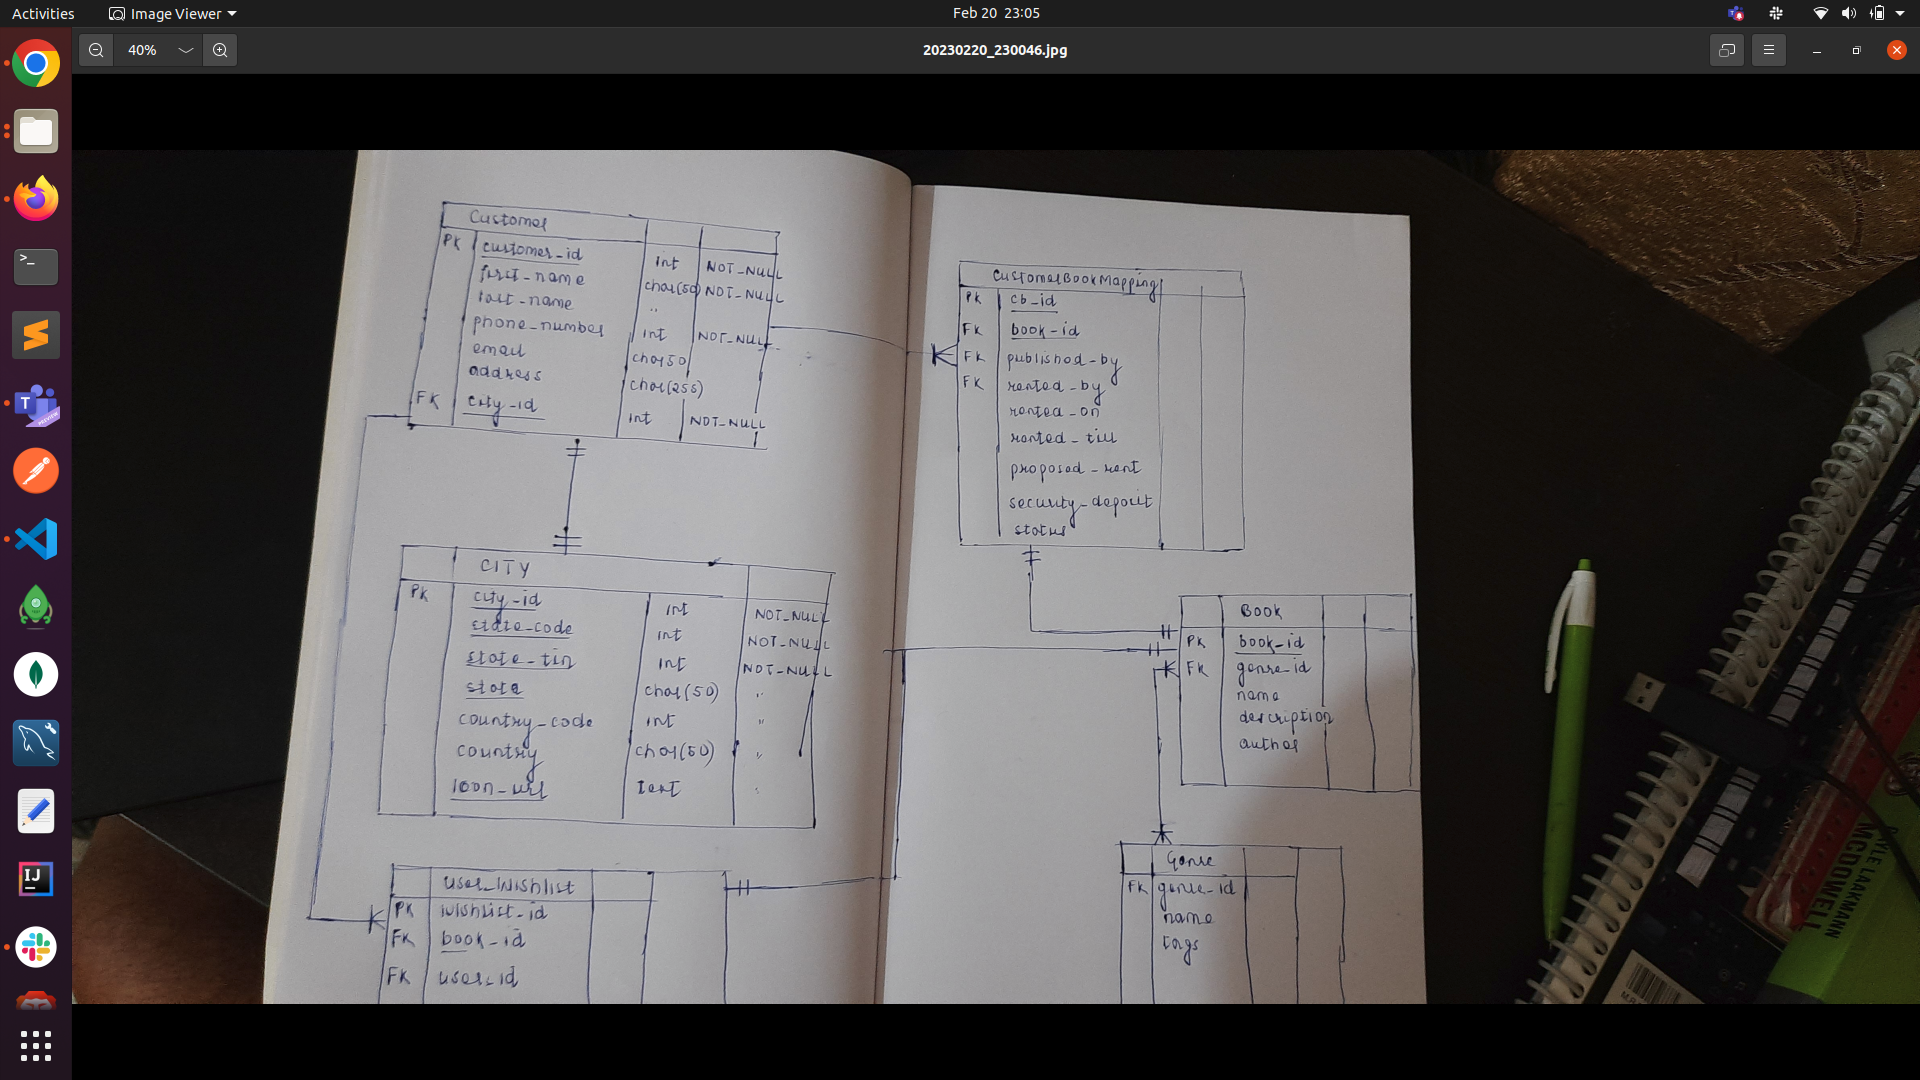 Activities
Image Viewer
Feb 20 23:05
40%
20230220_230046.jpg
Customer
PK customer_id int NOT_NULL
first_name char(50) NOT_NULL
last_name "
phone_number int NOT_NULL
email char50
address char(255)
FK city_id int NOT_NULL
CITY
PK city_id int NOT_NULL
state_code int NOT_NULL
state_tin int NOT_NULL
state char(50) "
country_code int "
country char(50) "
icon_url text "
user_wishlist
PK wishlist_id
FK book_id
FK user_id
CustomerBookMapping
PK cb_id
FK book_id
FK published_by
FK rented_by
rented_on
rented_till
proposed_rent
security_deposit
status
Book
PK book_id
FK genre_id
name
description
author
Genre
FK genre_id
name
tags
LAAKMANN
MCDOWELL